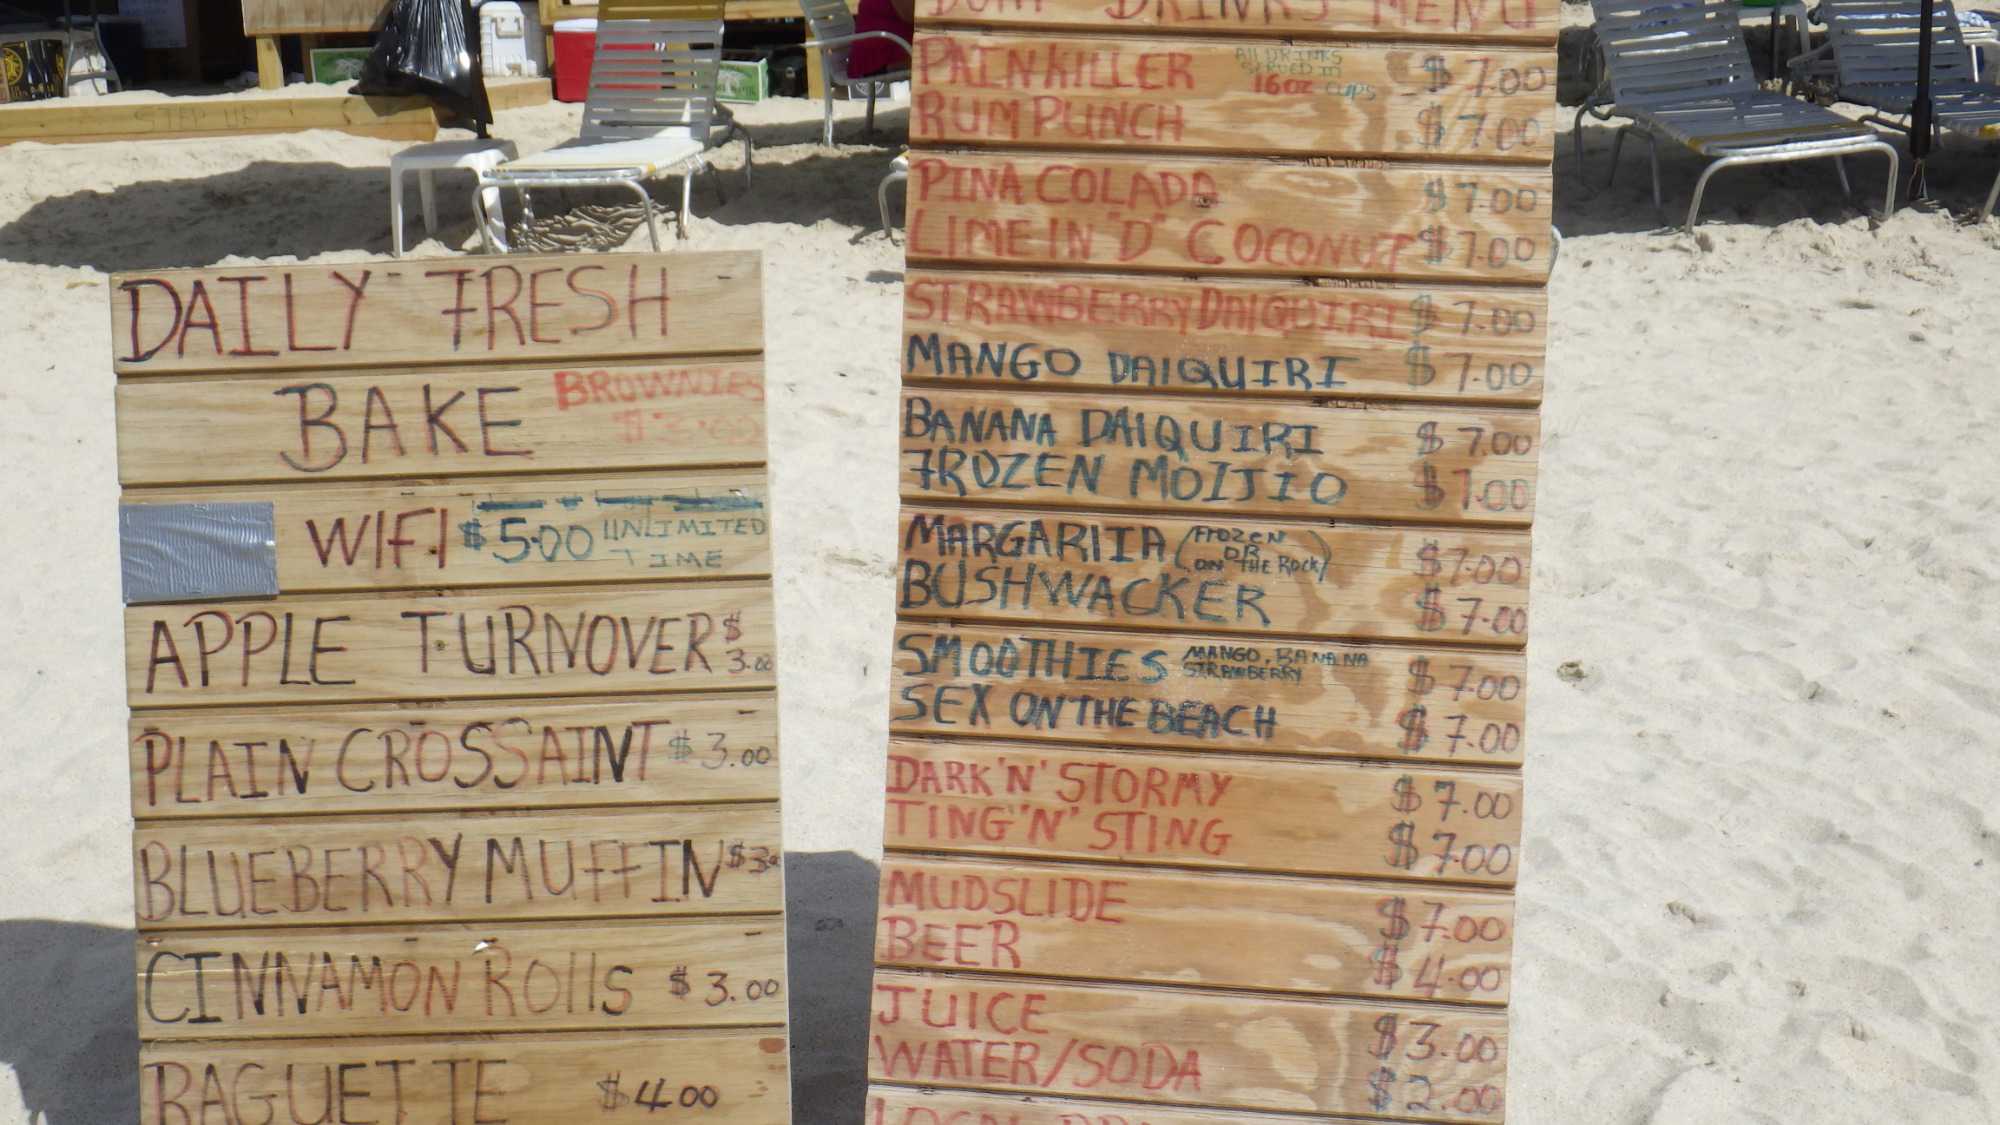 STEP UP
DAILY FRESH
BAKE BROWNIES
$3.00
WIFI $5.00 UNLIMITED
TIME
APPLE TURNOVER $
3.00
PLAIN CROSSAINT $3.00
BLUEBERRY MUFFIN $3.
CINNAMON ROLLS $3.00
BAGUETTE $4.00
DRINKS MENU
PAINKILLER ALL DRINKS SERVED IN 16OZ CUPS $7.00
RUM PUNCH $7.00
PINA COLADA $7.00
LIME IN "D" COCONUT $7.00
STRAWBERRY DAIQUIRI $7.00
MANGO DAIQUIRI $7.00
BANANA DAIQUIRI $7.00
FROZEN MOIJIO $7.00
MARGARITA (FROZEN OR ON THE ROCK) $7.00
BUSHWACKER $7.00
SMOOTHIES MANGO, BANANA STRAWBERRY $7.00
SEX ON THE BEACH $7.00
DARK 'N' STORMY $7.00
TING "N" STING $7.00
MUDSLIDE $7.00
BEER $4.00
JUICE $3.00
WATER/SODA $2.00
LOCAL